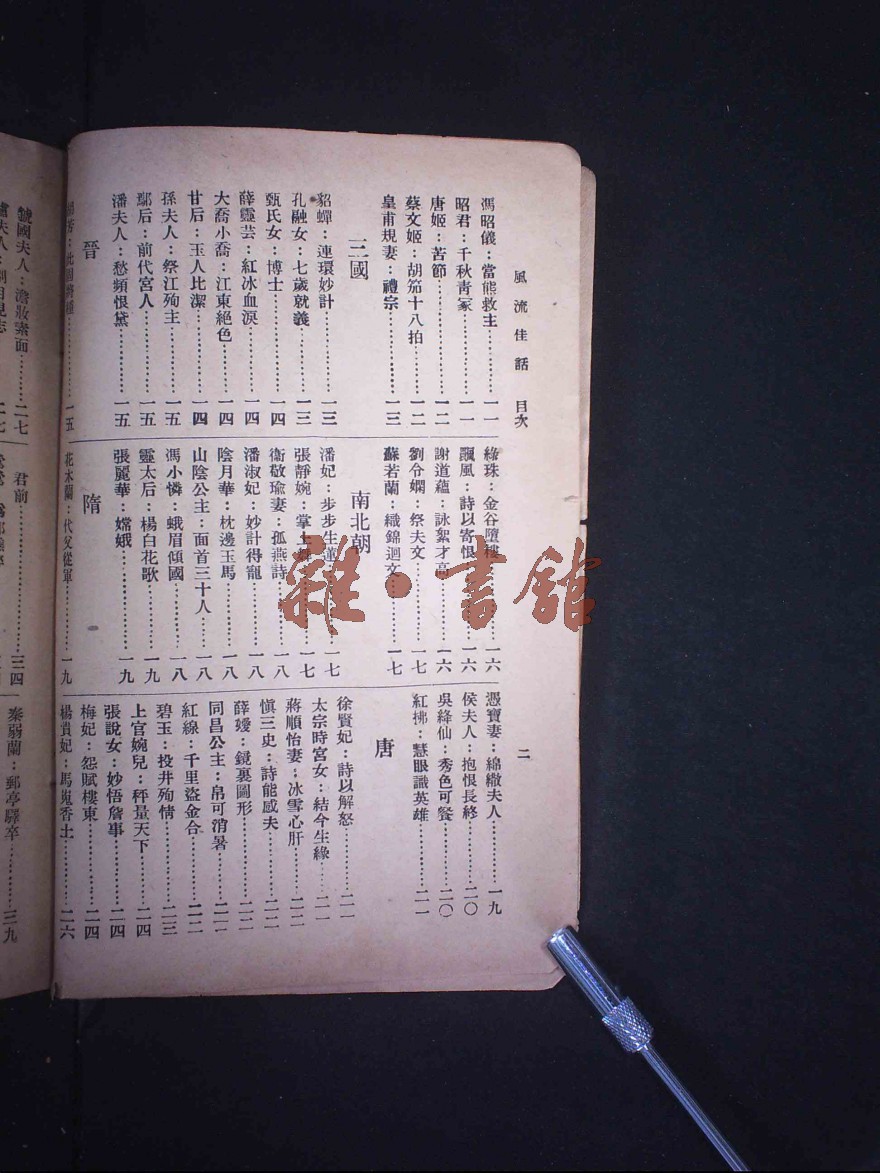 風流佳話 目次
二
馮昭儀：當熊救主…………一一
昭君：千秋青冢…………一一
唐姬：苦節…………一二
蔡文姬：胡笳十八拍…………一二
皇甫規妻：禮宗…………一三
三國
貂蟬：連環妙計…………一三
孔融女：七歲就義…………一三
甄氏女：博士…………一四
薛靈芸：紅冰血淚…………一四
大喬小喬：江東絕色…………一四
甘后：玉人比潔…………一四
孫夫人：祭江殉主…………一五
鄢后：前代宮人…………一五
潘夫人：愁頻恨黛…………一五
晉
一五
綠珠：金谷墮樓…………一六
飄風：詩以寄恨…………一六
謝道蘊：詠絮才高…………一六
劉令嫻：祭夫文…………一七
蘇若蘭：織錦迴文…………一七
南北朝
潘妃：步步生蓮…………一七
張靜婉：掌上舞…………一七
衞敬瑜妻：孤燕詩…………一八
潘淑妃：妙計得寵…………一八
陰月華：枕邊玉馬…………一八
山陰公主：面首三十人……一八
馮小憐：蛾眉傾國…………一八
靈太后：楊白花歌…………一九
張麗華：嫦娥…………一九
隋
花木蘭：代父從軍…………一九
馮寶妻：綿繖夫人…………一九
侯夫人：抱恨長終…………二〇
吳絳仙：秀色可餐…………二〇
紅拂：慧眼識英雄…………二一
唐
徐賢妃：詩以解怒…………二一
太宗時宮女：結今生緣……二一
蔣順怡妻：冰雪心肝…………二二
愼三史：詩能感夫…………二二
薛嬡：鏡裏圖形…………二二
同昌公主：帛可消暑…………二二
紅線：千里盜金合…………二二
碧玉：投井殉情…………二三
上官婉兒：秤量天下…………二四
張說女：妙悟詹事…………二四
梅妃：怨賦樓東…………二四
楊貴妃：馬嵬香土…………二六
虢國夫人：澹妝素面………二七
二七
君前…………三四
秦弱蘭：郵亭驛卒…………三九
雜·書館